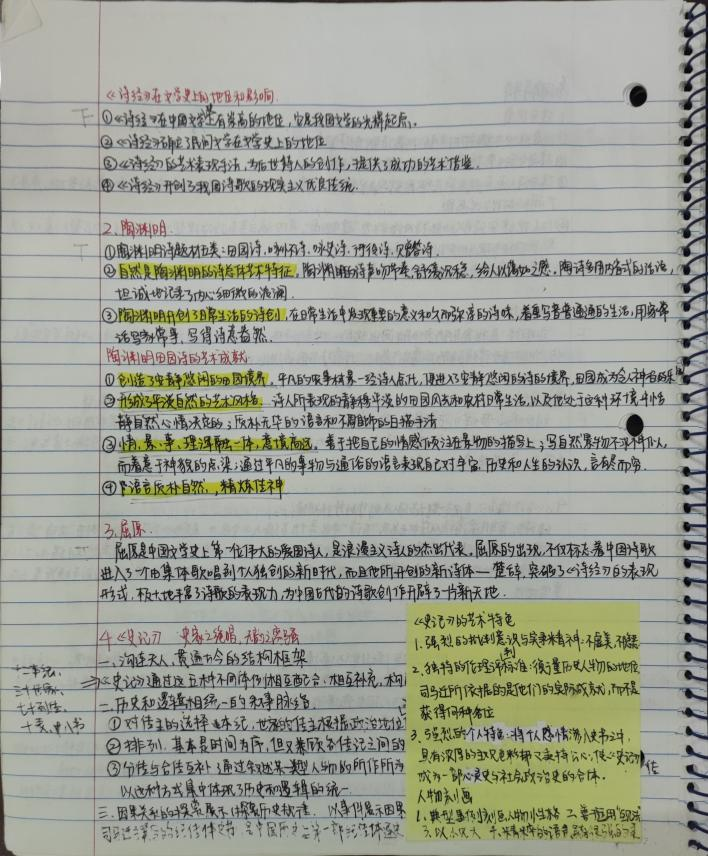 《诗经》在文学史上的地位和影响
①《诗经》在中国文学史上有崇高的地位，它是我国文学的光辉起点。
②《诗经》确定了民间文学在文学史上的地位
③《诗经》的艺术表现手法，为后世诗人的创作，提供了成功的艺术借鉴。
④《诗经》开创了我国诗歌的现实主义优良传统。
2. 陶渊明.
①陶渊明诗题材五类：田园诗、咏怀诗、咏史诗、行役诗、赠答诗。
②自然是陶渊明的诗总体艺术特征，陶渊明的诗声，舒缓沉稳，给人以之感。陶诗多用内省式的话语，
坦诚地记录了内心细微的波澜
③陶渊明开创了日常生活的诗创，在日常生活中发现重要的意义和久而弥淳的诗味，着再写普普通通的生活，用家常
话写家常事，写得诗意盎然.
陶渊明田园诗的艺术成就
①创造了安静悠闲的田园境界，平凡的农事村景一经诗人点化，便进入了安静悠闲的诗的境界，田园成为令人神着的乐
②形成了平淡自然的艺术风格.诗人所表现的静穆平淡的田园风光和农村日常生活，以及他处于这种环境中恬
静自然心情决定的；质朴无华的语言和不用雕饰的白描手法
③情、景、事、理浑融一体，意境高远.善于把自己的情感倾注在景物的描写上；写自然景物不求形似，
而着意于神貌的点染；通过平凡的事物与通俗的语言表现自己对宇宙、历史和人生的认识，言有尽而意无穷.
④语言质朴自然，精炼传神
3. 屈原.
屈原是中国文学史上第一位伟大的爱国诗人，是浪漫主义诗人的杰出代表。屈原的出现，不仅标志着中国诗歌
进入了一个由集体歌唱到个人独创的新时代，而且他所开创的新诗体——楚辞，突破了《诗经》的表现
形式，极大地丰富了诗歌的表现力，为中国古代的诗歌创作开辟了一片新天地.
4.《史记》 史家之绝唱，无韵之离骚
一、沟连天人，贯通古今的结构框架
《史记》通过这五种不同体例相互配合、相互补充，构
十二本纪、
三十世家、
七十列传、
十表、八书
二.历史和逻辑相统一的叙事脉络.
①对传主的选择 本纪、世家的传主根据政治地位
②排列，基本是时间为序，但又兼顾各传记之间的
③分传与合传互补，通过叙述某一类型人物的所作所为
以这种方式集中体现了历史和逻辑的统一
三.因果关系的探究展示
《史记》的艺术特色
1. 强烈的批判意识与实录精神：不虚美，不隐恶
2. 独特的伦理评判标准：衡量历史人物的地位
司马迁所依据的是他们的实际成就，而不是
获得何种名位
3. 强烈的个人特色：将个人感情渗入史书之中.
具有浓厚的主观色彩，使《史记》
成为一部心灵史与社会政治史的合体. 传
人物刻画
1. 典型事例刻画人物小生格 二.善于运用"